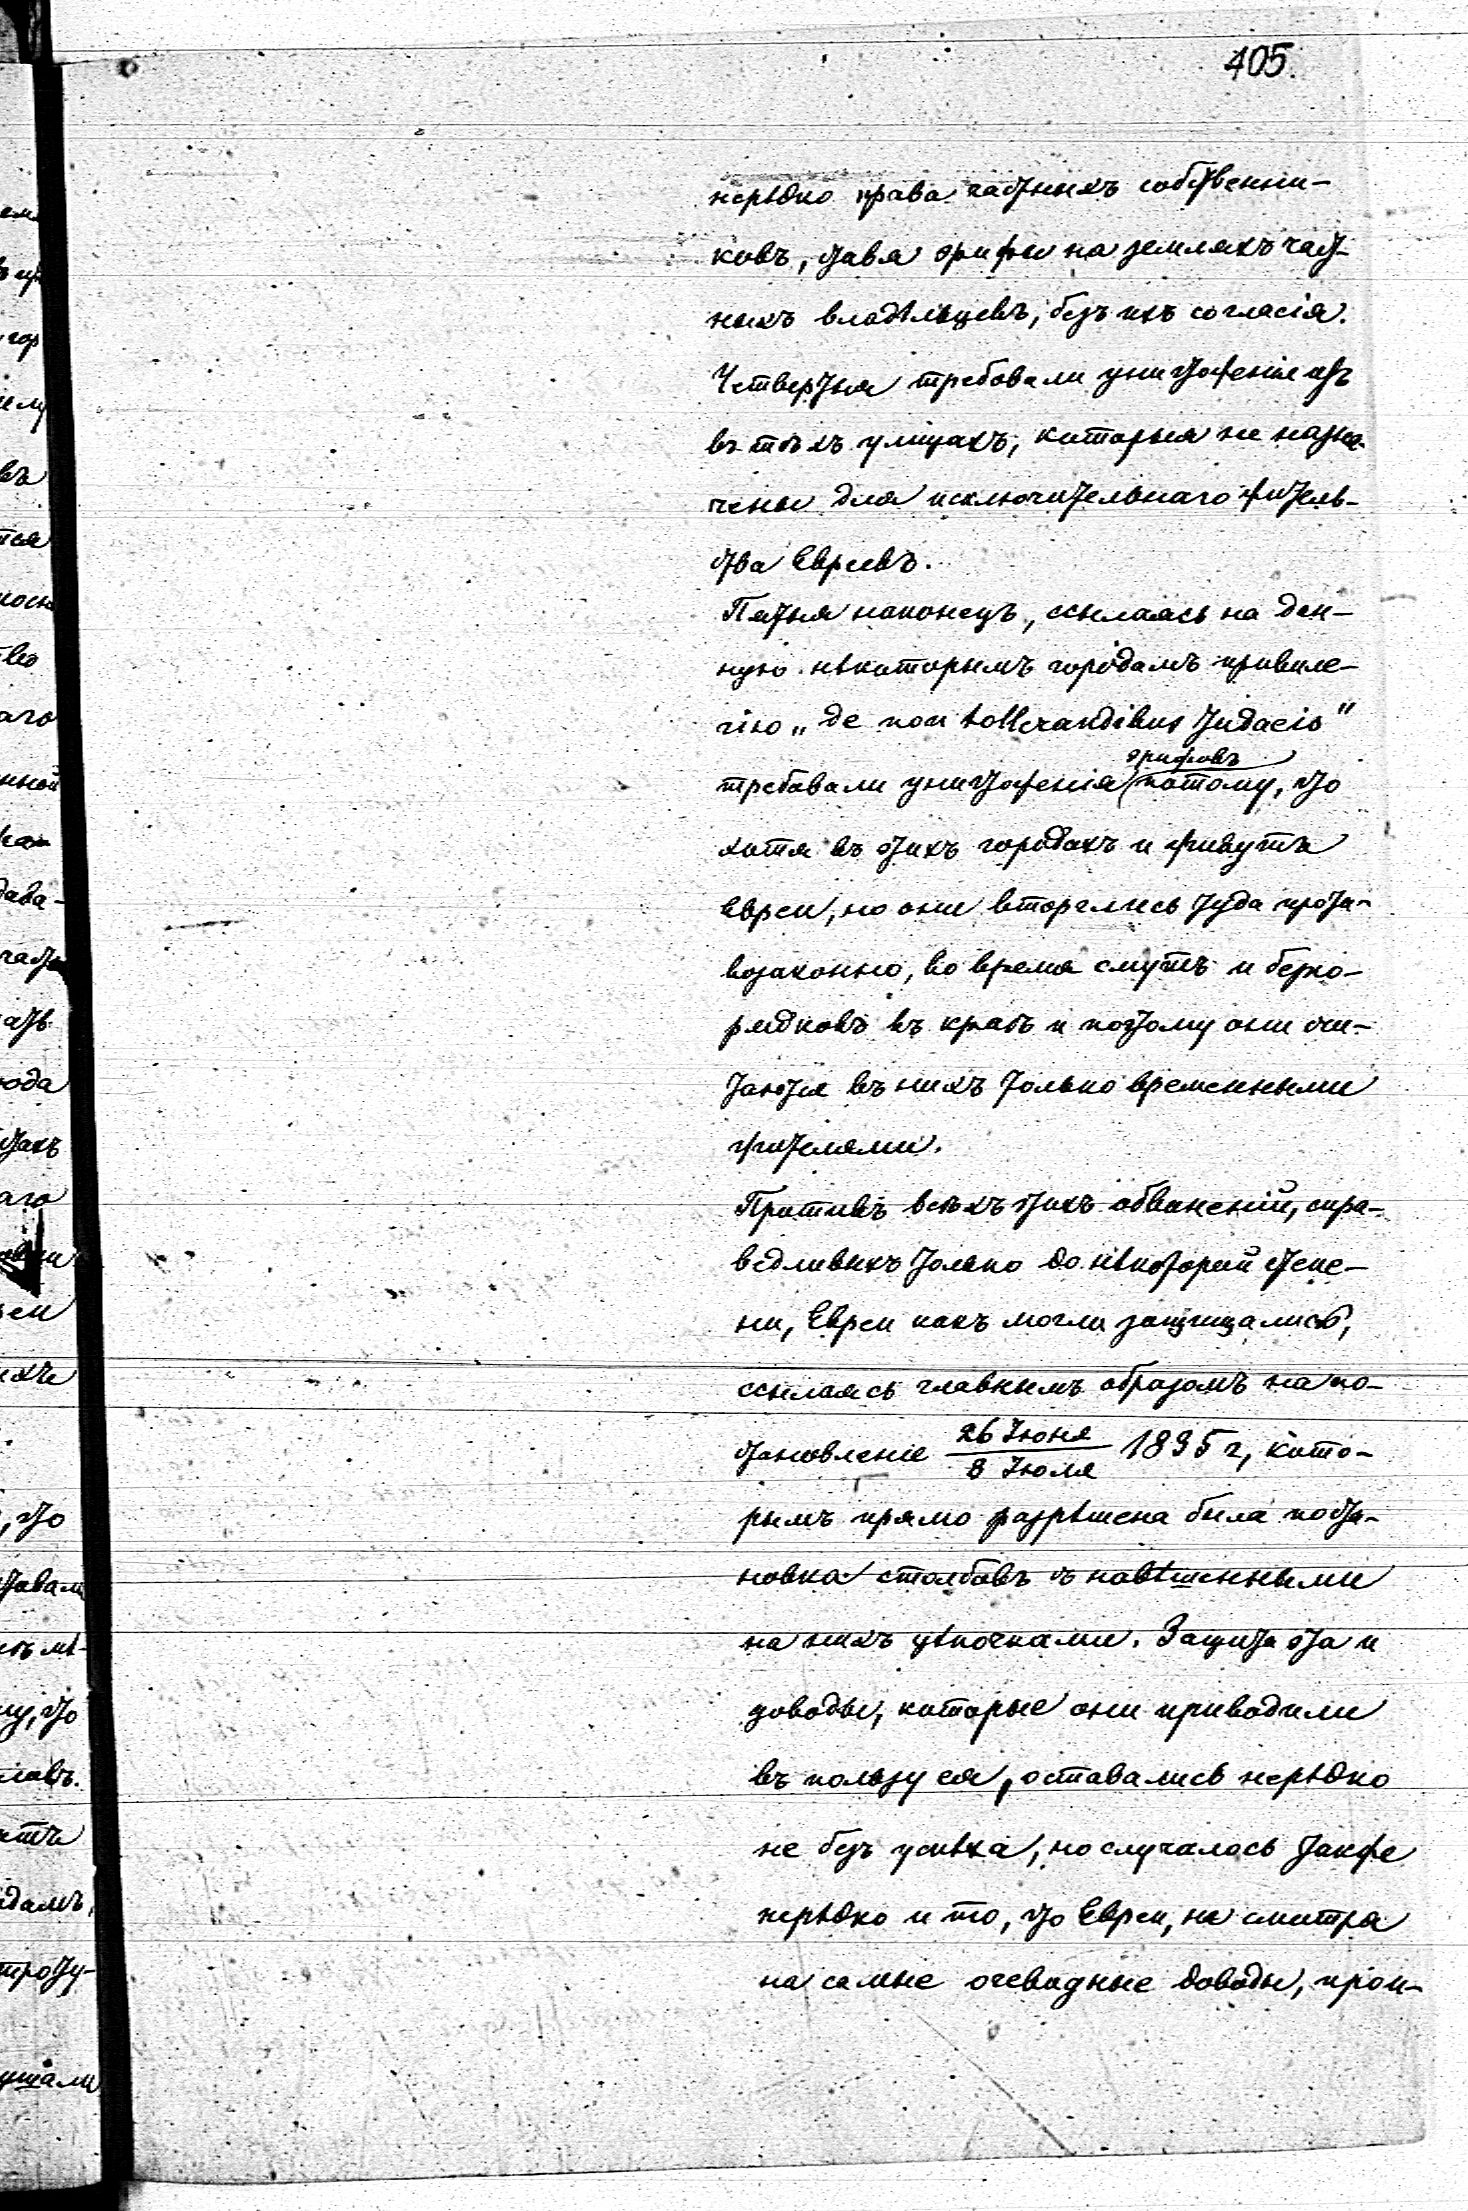 405.
нерѣдко права частныхъ собственни-
ковъ, ставя эрифы на земляхъ част-
ныхъ владѣльцевъ, безъ ихъ согласія.
Четвертые требовали уничтоженіе ихъ
въ тѣхъ улицахъ, которыя не назна-
чены для исключительнаго жительс-
тва Евреевъ.
Пятыя наконецъ, ссылаясь на дан-
ную нѣкоторымъ городамъ привиле-
гію „de non tollerandibus Judaeis"
эрифовъ
требовали уничтоженія потому, что
хотя въ этихъ городахъ и живутъ
евреи, но они вторглись туда проти-
возаконно, во время смутъ и безпо-
рядковъ въ краѣ и поэтому они счи-
таются въ нихъ только временными
жителями.
Противъ всѣхъ этихъ обвиненій, спра-
ведливыхъ только до нѣкоторой степе-
ни, Евреи какъ могли защищались,
ссылаясь главнымъ образомъ на по-
становленіе 26 Іюня / 8 Іюля 1835 г, кото-
рымъ прямо разрѣшена была поста-
новка столбовъ съ навѣшенными
на нихъ цѣпочками. Защита эта и
доводы, которые они приводили
въ пользу ея, оставались нерѣдко
не безъ успѣха, но случалось также
нерѣдко и то, что Евреи, не смотря
на самые очевидные доводы, прои-